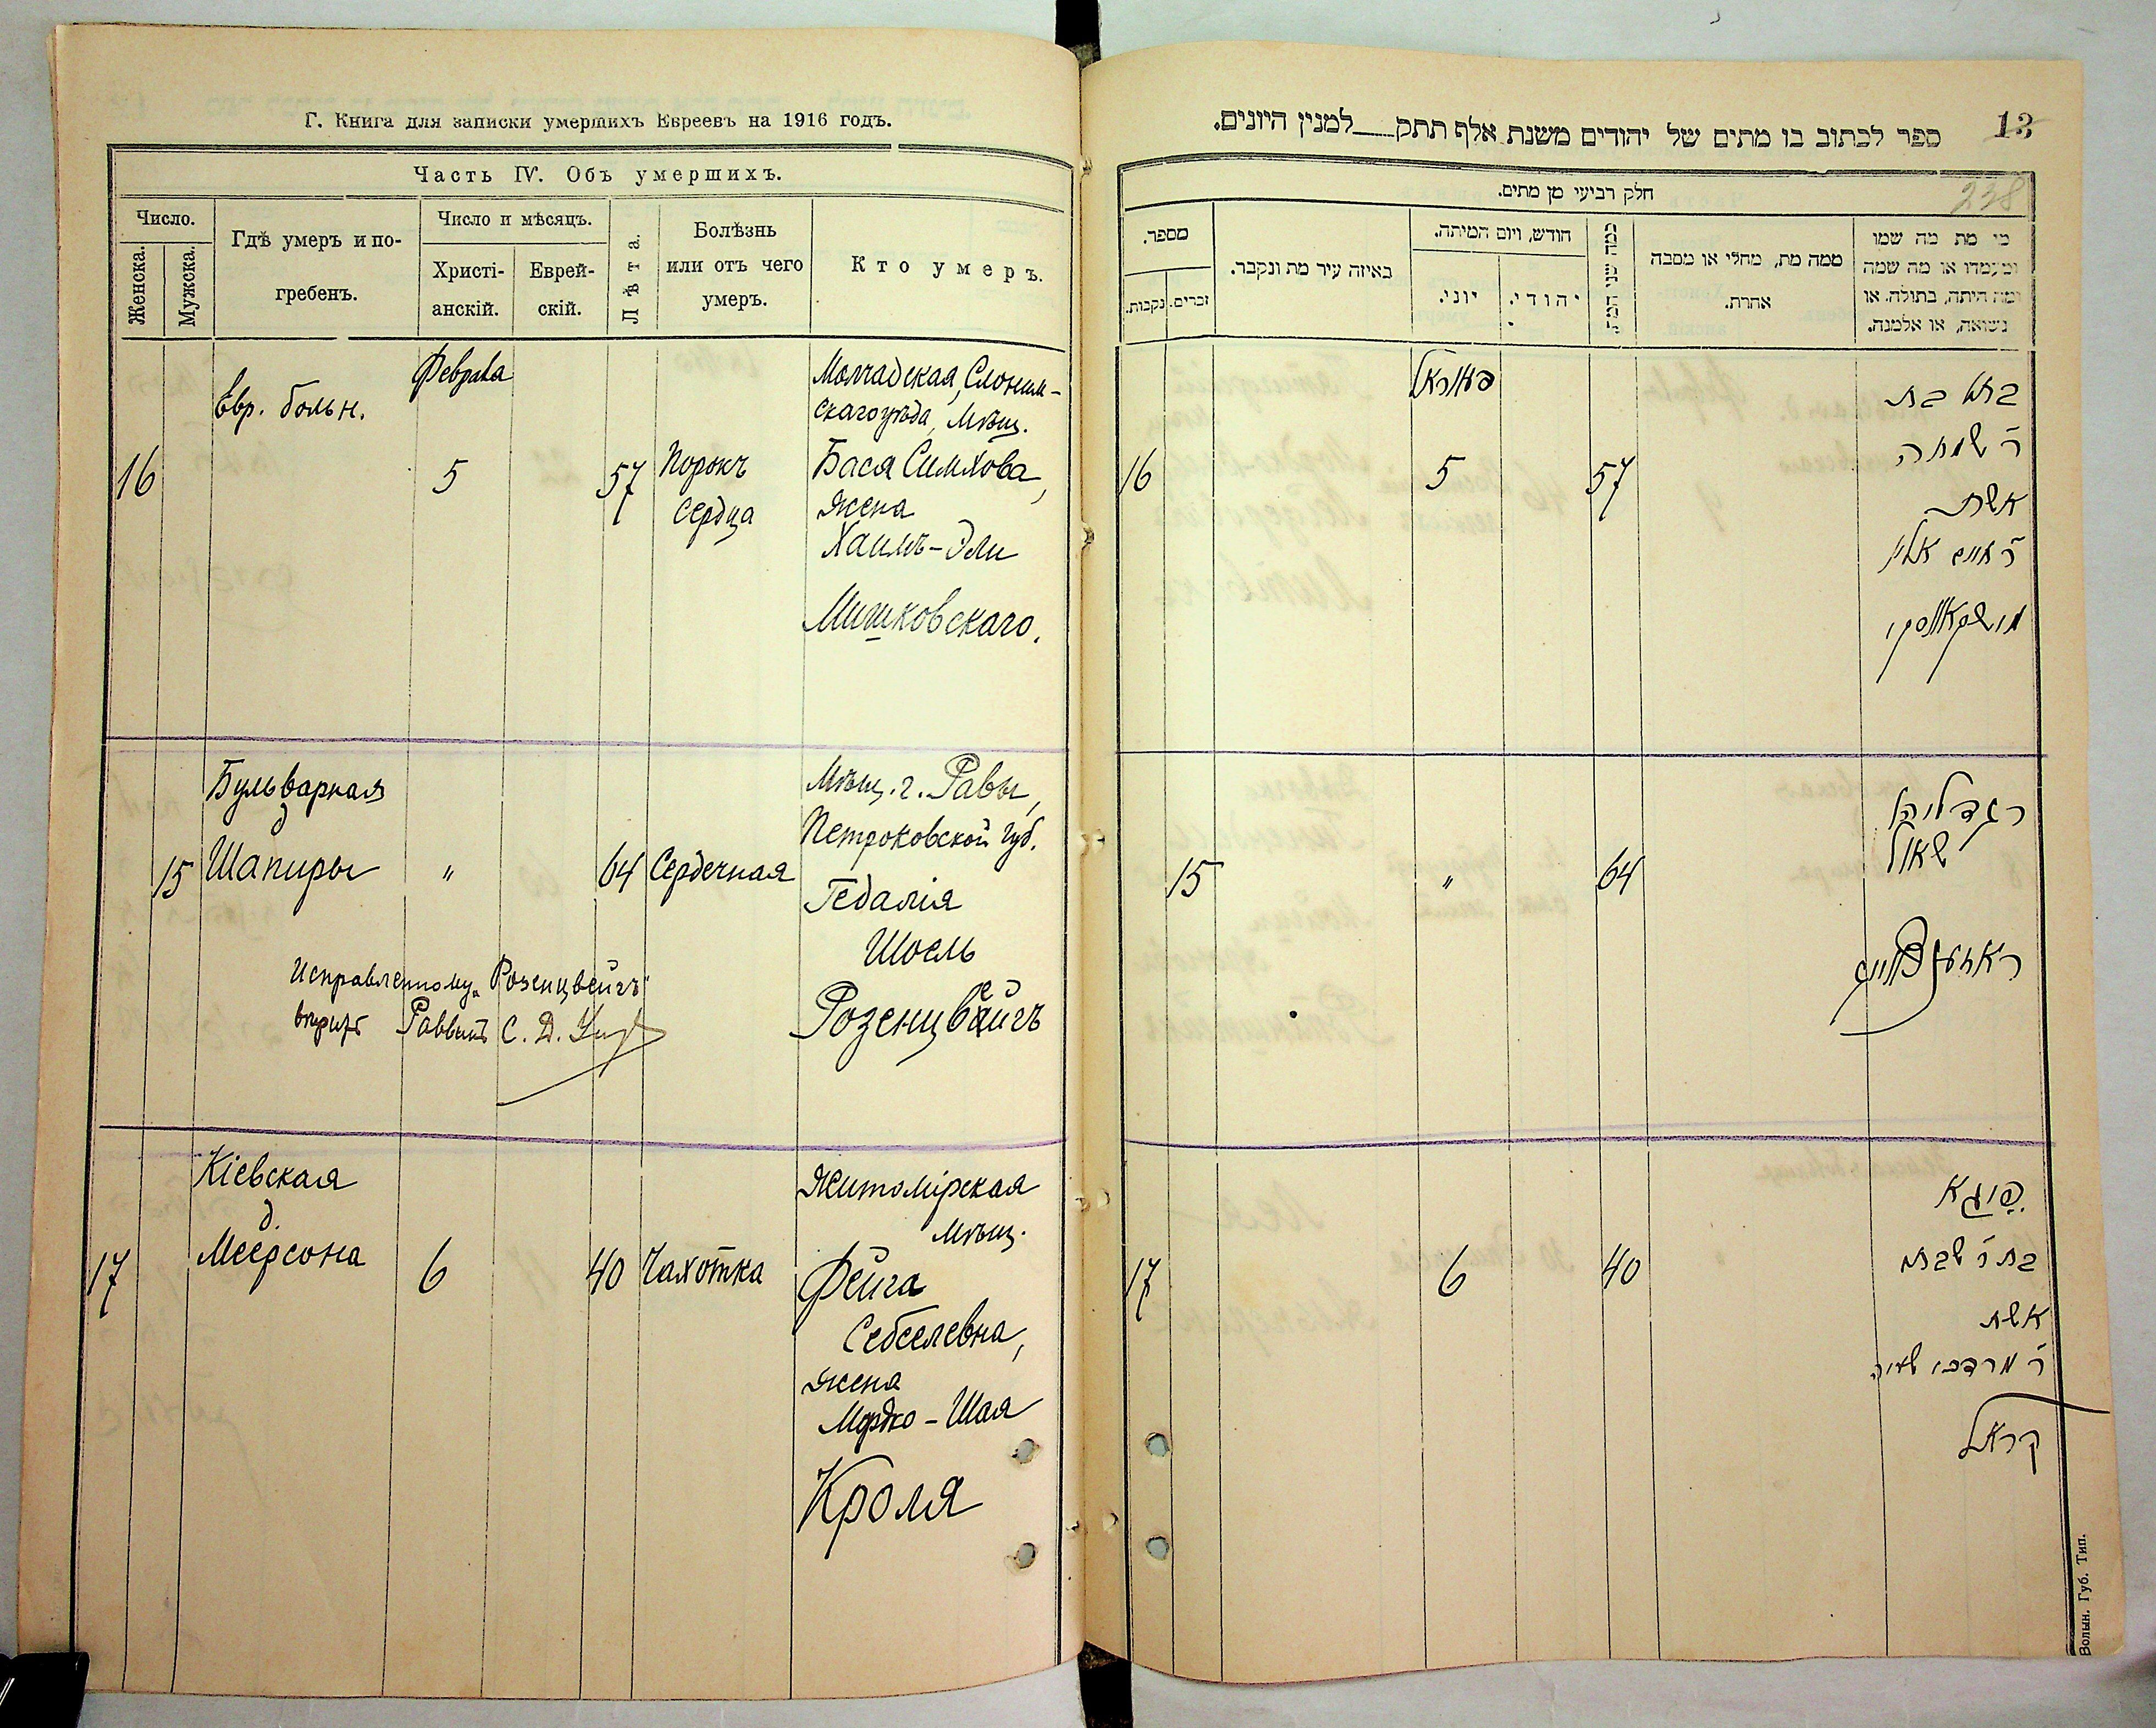 Г. Книга для записки умершихъ Евреевъ на 1916 годъ.
Часть IV. Объ умершихъ.
Число.
Женска.
Мужска.
Гдѣ умеръ и по-
гребенъ.
Число и мѣсяцъ.
Христі-
анскій.
Еврей-
скій.
Лѣта.
Болѣзнь
или отъ чего
умеръ.
Кто умеръ.
Февраля
Евр. больн.
16
5
57
Порокъ
сердца
Молчадская, Слоним-
скаго уѣзда, Мѣщ.
Бася Симхова,
жена
Хаимъ-Эли
Мишковскаго.
Бульварная
д
Шапиры
15
"
64
Сердечная
Мѣщ. г. Равы,
Петроковской губ.
Гедалія
Шоель
Розенцвейгъ
Исправленному „Розенцвейгъ"
вѣрить Раввинъ С. Д.
Кіевская
д.
Меерсона
17
6
40
Чахотка
Житомірская
мѣщ.
Фейга
Себселевна,
жена
Мордко-Шая
Кроля
13
ספר לכתוב בו מתים של יהודים משנת אלף תתק למנין היונים.
238
חלק רביעי מן מתים.
מי מת מה שמו
ומעמדו או מה שמה
ומה היתה, בתולה, או
נשואה, או אלמנה.
ממה מת, מחלי או מסבה
אחרת.
כמה שני המת
חודש, ויום המיתה.
יהודי.
יוני.
באיזה עיר מת ונקבר.
מספר.
זכרים.
נקבות.
פעווראל
16
5
57
באש בת
ר' שמחה
אשת
ר' חיים אלי
מישקאווסקי
15
"
64
ר' גדליהו
שאול
ראזענצווייג
17
6
40
פייגא
בת ר' שבת
אשת
ר' מרדכי שעיה
קראל
Волын. Губ. Тип.